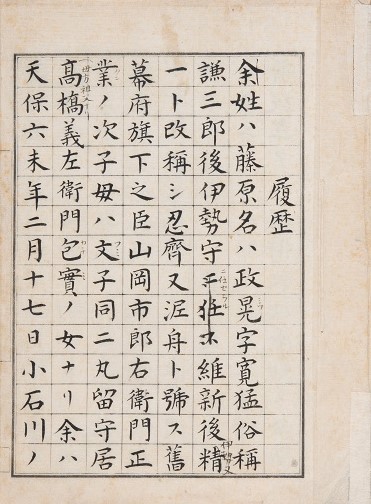 履歴
余姓ハ藤原名ハ政晃字寛猛俗称
謙三郎後伊勢守ニ任 維新後精
一ト改称シ忍齊又泥舟ト號ス舊
幕府旗下之臣山岡市郎右衛門正
業ノ次子母ハ文子同二丸留守居
高橋義左衛門包實ノ女ナリ余ハ
天保六未年二月十七日小石川ノ